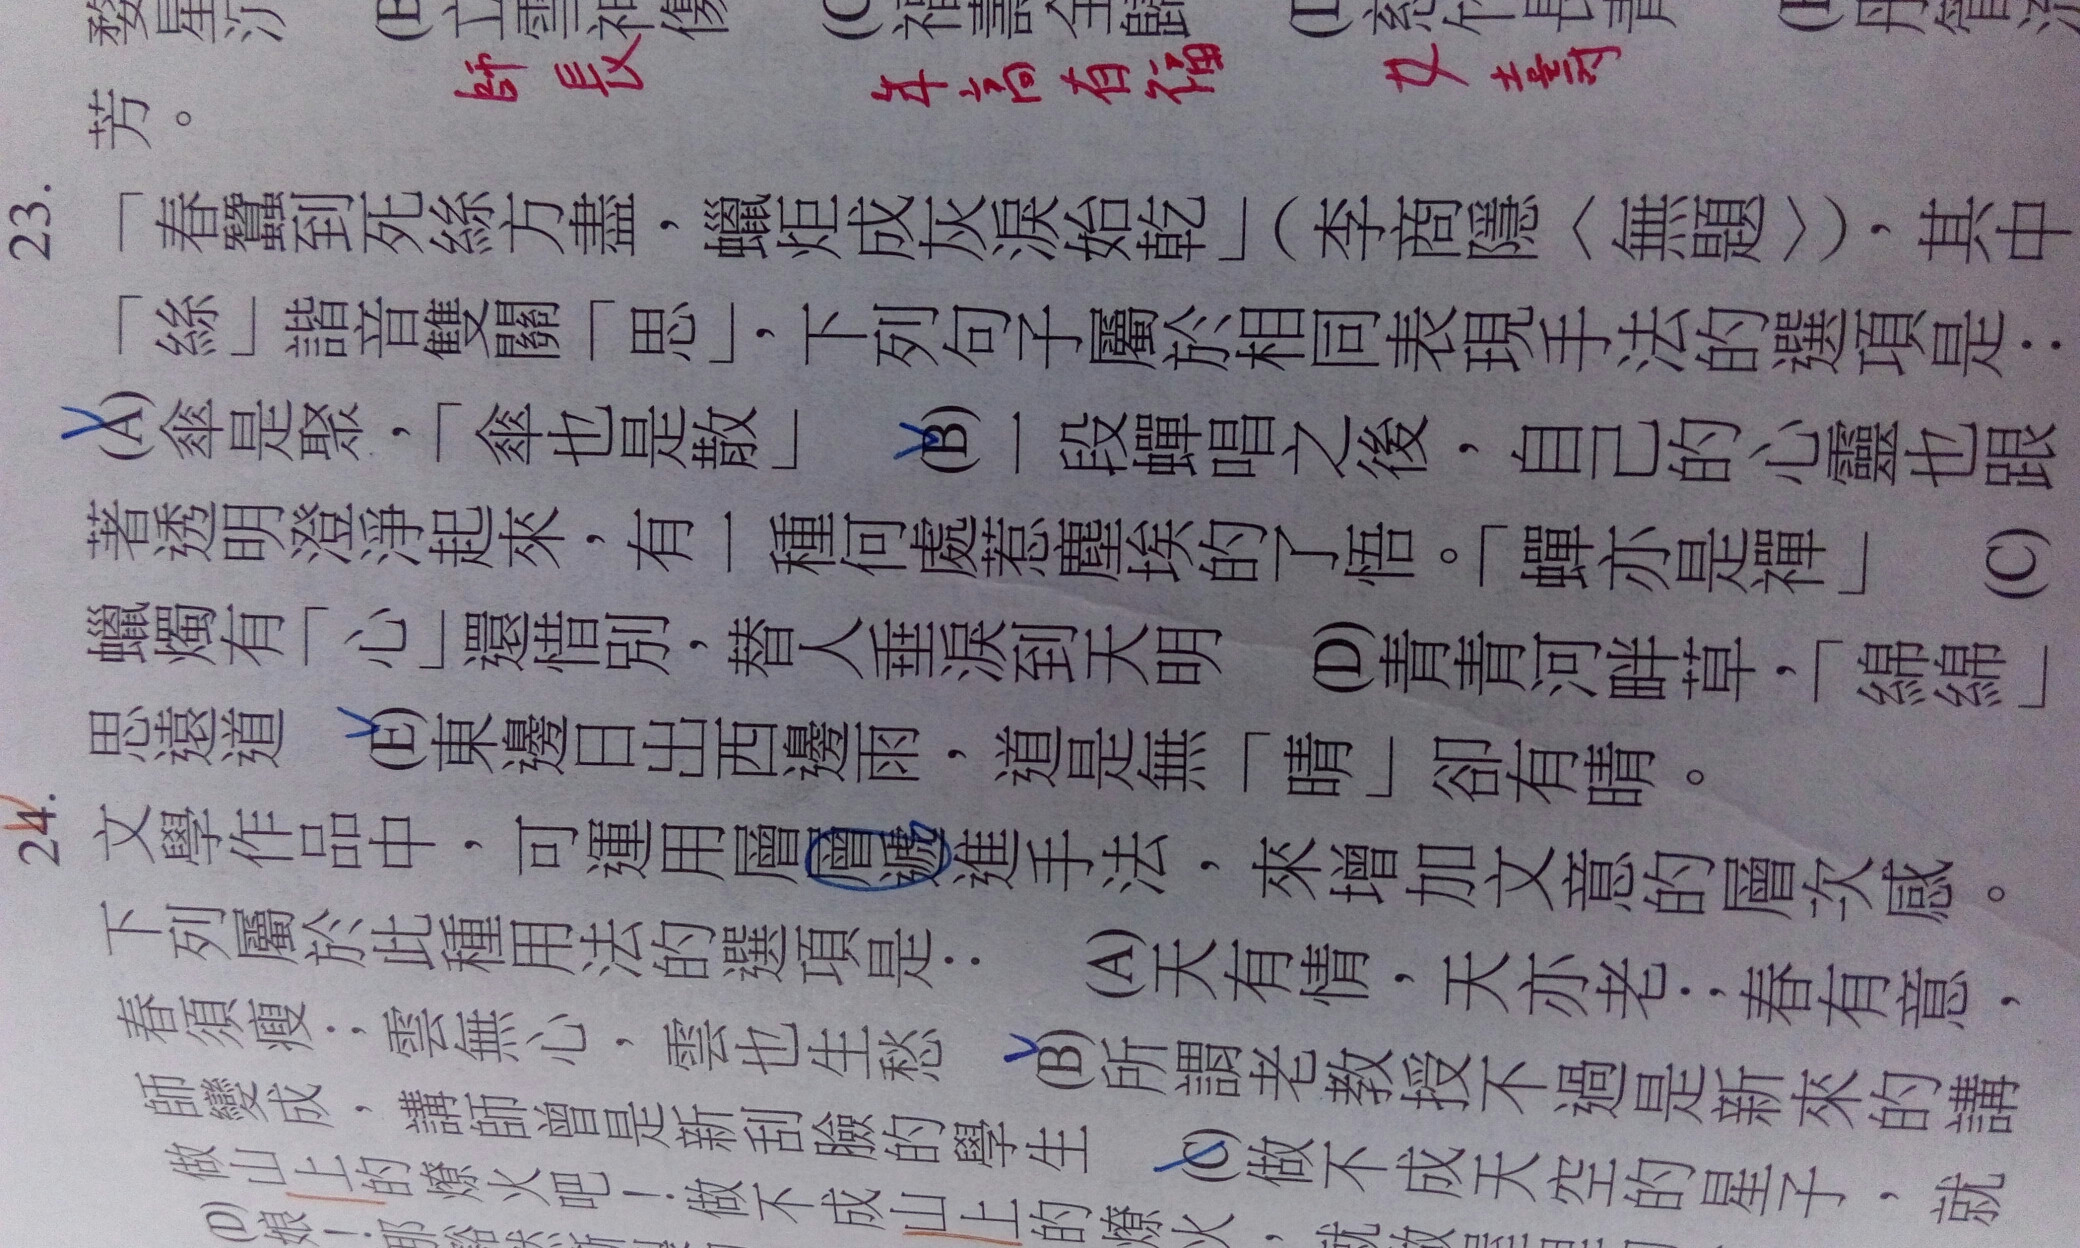 婺星沉 (B)立雪神傷 (C)福壽全歸
師長 年高有福 女壽
芳。
23.「春蠶到死絲方盡，蠟炬成灰淚始乾」（李商隱〈無題〉），其中
「絲」諧音雙關「思」，下列句子屬於相同表現手法的選項是：
(A)傘是聚，「傘也是散」 (B)一段蟬唱之後，自己的心靈也跟
著透明澄淨起來，有一種何處惹塵埃的了悟。「蟬亦是禪」 (C)
蠟燭有「心」還惜別，替人垂淚到天明 (D)青青河畔草，「綿綿」
思遠道 (E)東邊日出西邊雨，道是無「晴」卻有晴。
24.文學作品中，可運用層層遞進手法，來增加文意的層次感。
下列屬於此種用法的選項是： (A)天有情，天亦老；春有意，
春須瘦；雲無心，雲也生愁 (B)所謂老教授不過是新來的講
師變成，講師曾是新刮臉的學生 (C)做不成天空的星子，就
做山上的燎火吧！做不成山上的燎火，
(D)娘！那